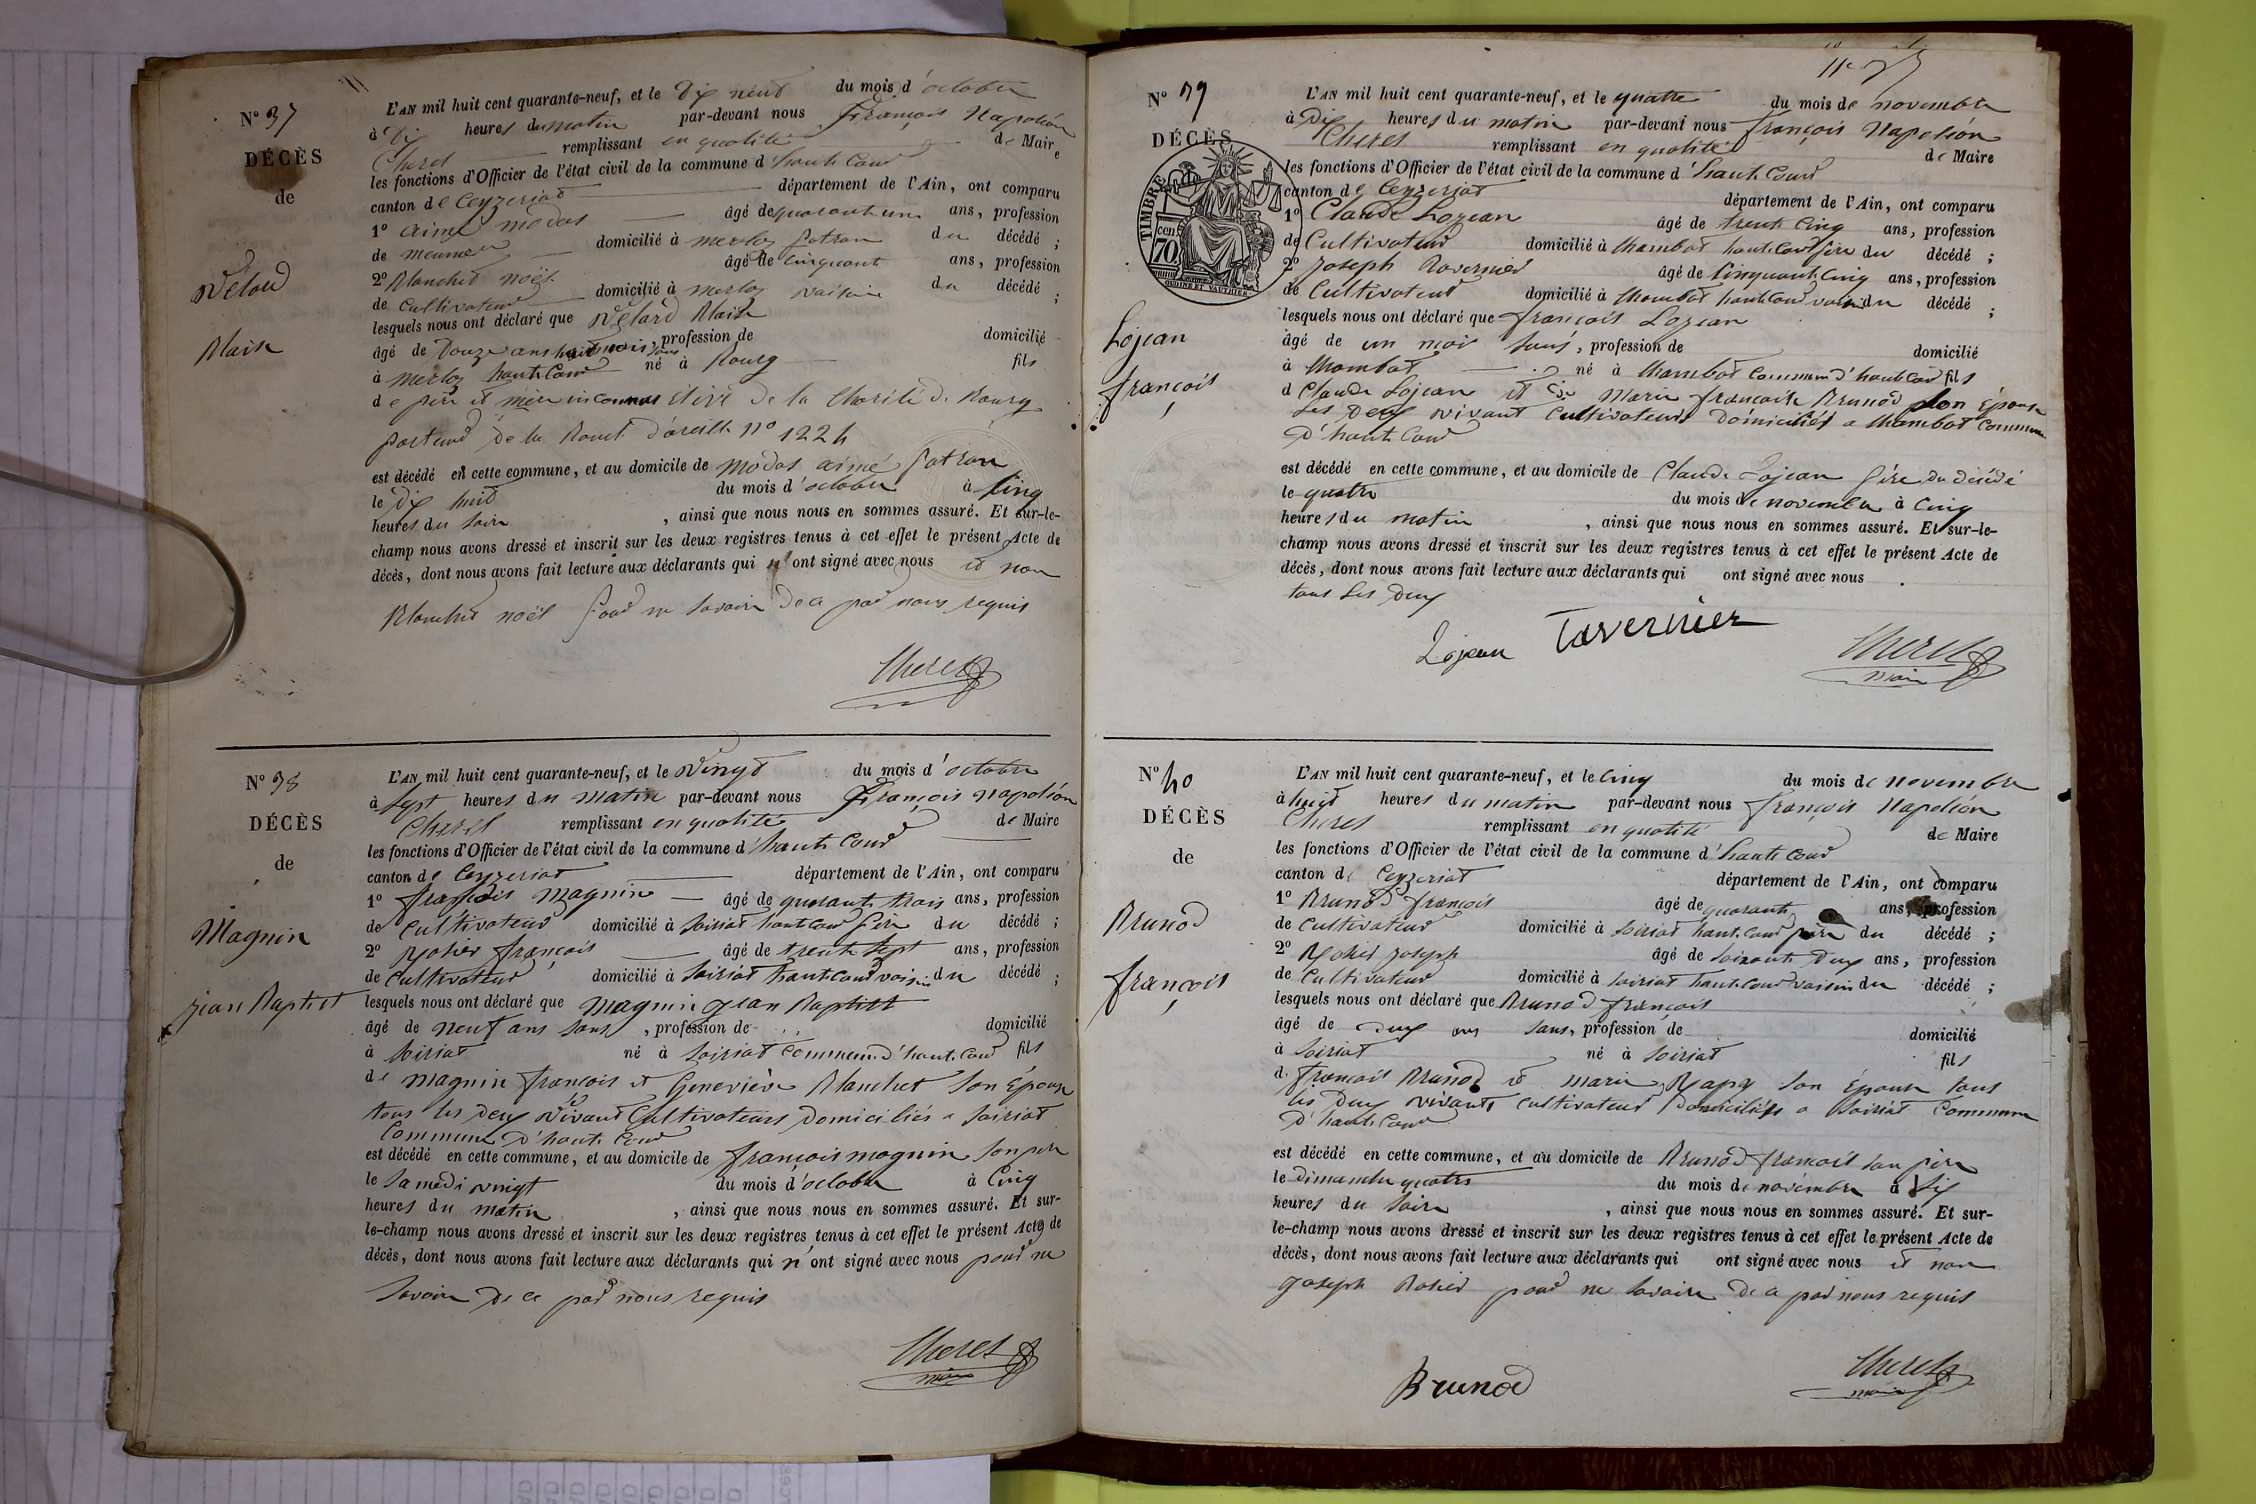 N° 37
DÉCÈS
de
Velard
Blaise
L'AN mil huit cent quarante-neuf, et le Dix neuf du mois d'octobre
à Dix heures du matin par-devant nous François Napoléon
Cheret remplissant en qualité de Maire
les fonctions d'Officier de l'état civil de la commune d'hautecour
canton de Ceyzeriat département de l'Ain, ont comparu
1° aimé modas âgé de quarant un ans, profession
de meunier domicilié à merloz patron du décédé ;
2° Blanchet noël âgé de cinquant ans, profession
de cultivateur domicilié à merloz voisin du décédé ;
lesquels nous ont déclaré que Velard Blaise
âgé de Douze ans huit mois, sans profession de domicilié
à merloz hautecour né à Bourg fils
de père et mère inconnus élève de la Charité de Bourg
porteur de la Boucle d'oreille n° 1224
est décédé en cette commune, et au domicile de modas aimé patron
le Dix huit du mois d'octobre à cinq
heures du soir , ainsi que nous nous en sommes assuré. Et sur-le-
champ nous avons dressé et inscrit sur les deux registres tenus à cet effet le présent Acte de
décès, dont nous avons fait lecture aux déclarants qui n'ont signé avec nous et non
Blanchet noël pour ne savoir de ce par nous requis
Cheret
N° 38
DÉCÈS
de
Magnin
jean Baptist
L'AN mil huit cent quarante-neuf, et le vingt du mois d'octobre
à sept heures du matin par-devant nous François Napoléon
Cheret remplissant en qualité de Maire
les fonctions d'Officier de l'état civil de la commune d'haute cour
canton de Ceyzeriat département de l'Ain, ont comparu
1° françois magnin âgé de quarante trois ans, profession
de cultivateur domicilié à soiriat hautecour père du décédé ;
2° Rohier françois âgé de trente sept ans, profession
de cultivateur domicilié à soiriat hautecour voisin du décédé ;
lesquels nous ont déclaré que magnin jean Baptist
âgé de neuf ans sans , profession de domicilié
à soiriat né à soiriat commune d'hautecour fils
de magnin françois et Geneviève Blanchet son Épouse
tous les deux vivant Cultivateurs Domiciliés a soiriat
Commune d'haute Cour
est décédé en cette commune, et au domicile de françois magnin son père
le samedi vingt du mois d'octobre à cinq
heures du matin , ainsi que nous nous en sommes assuré. Et sur-
le-champ nous avons dressé et inscrit sur les deux registres tenus à cet effet le présent Acte de
décès, dont nous avons fait lecture aux déclarants qui n'ont signé avec nous pour ne
savoir de ce par nous requis
Cheret
maire
N° 39
DÉCÈS
TIMBRE
70 cen
Lojean
françois
L'AN mil huit cent quarante-neuf, et le quatre du mois de novembre
à Dix heures du matin par-devant nous François Napoléon
Cheret remplissant en qualité de Maire
les fonctions d'Officier de l'état civil de la commune d'haute Cour
canton de Ceyzeriat département de l'Ain, ont comparu
1° Claude Lojean âgé de trent cinq ans, profession
de Cultivateur domicilié à Chambot hautecour père du décédé ;
2° Joseph Tavernier âgé de cinquant cinq ans, profession
de Cultivateur domicilié à Chambot hautecour voisin du décédé ;
lesquels nous ont déclaré que françois Lojean
âgé de un mois sans, profession de domicilié
à Chambot né à Chambot commune d'hautecour fils
d Claude Lojean et de Marie françoise Brunod son Épouse
Les Deux vivant Cultivateurs domiciliés a Chambot Commune
d'haute Cour
est décédé en cette commune, et au domicile de Claude Lojean père du décédé
le quatre du mois de novembre à cinq
heures du matin , ainsi que nous nous en sommes assuré. Et sur-le-
champ nous avons dressé et inscrit sur les deux registres tenus à cet effet le présent Acte de
décès, dont nous avons fait lecture aux déclarants qui ont signé avec nous
tous Les Deux
Lojean Tavernier Cheret
maire
N° 40
DÉCÈS
de
Brunod
françois
L'AN mil huit cent quarante-neuf, et le cinq du mois de novembre
à huit heures du matin par-devant nous françois Napoléon
Cheret remplissant en qualité de Maire
les fonctions d'Officier de l'état civil de la commune d'haute Cour
canton de Ceyzeriat département de l'Ain, ont comparu
1° Brunod françois âgé de quarante ans, profession
de cultivateur domicilié à soiriat hautecour père du décédé ;
2° Rohier joseph âgé de soixante deux ans, profession
de cultivateur domicilié à soiriat hautecour voisin du décédé ;
lesquels nous ont déclaré que Brunod françois
âgé de deux ans sans, profession de domicilié
à soiriat né à soiriat fils
d. françois Brunod et marie son Épouse tous
les deux vivants cultivateurs Domiciliés a soiriat Commune
d'haute Cour
est décédé en cette commune, et au domicile de Brunod françois son père
le dimanche quatre du mois de novembre à six
heures du soir , ainsi que nous nous en sommes assuré. Et sur-
le-champ nous avons dressé et inscrit sur les deux registres tenus à cet effet le présent Acte de
décès, dont nous avons fait lecture aux déclarants qui ont signé avec nous et non
joseph Rohier pour ne savoir de ce par nous requis
Brunod Cheret
maire